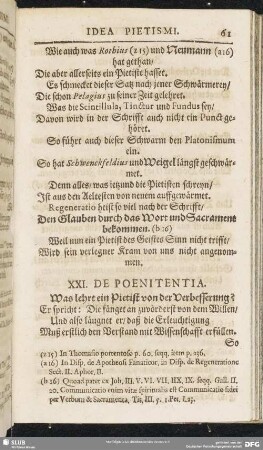 IDEA PIETISMI. 61
Wie auch was Rorbius (215) und Neumann (216)
hat gethan/
Die aber allerseits ein Pietiste hasset.
Es schmecket dieser Satz nach jener Schwärmerey/
Die schon Pelagius zu seiner Zeit gelehret.
Was die Scintillula, Tinctur und Fundus sey/
Davon wird in der Schrifft auch nicht ein Punct ge-
höret.
So führt auch dieser Schwarm den Platonismum
ein.
So hat Schwenckfeldius und Weigel längst geschwär-
met.
Denn alles/ was itzund die Pietisten schreyn/
Ist aus den Aeltesten von neuem auffgewärmet.
Regeneratio heist so viel nach der Schrifft/
Den Glauben durch das Wort und Sacrament
bekommen. (b 16)
Weil nun ein Pietist des Geistes Sinn nicht trifft/
Wird sein verlegner Kram von uns nicht angenom-
men.
XXI. DE POENITENTIA.
Was lehrt ein Pietist von der Verbesserung?
Er spricht: Die fänget an zuvörderst von dem Willen/
Und also läugnet er/ daß die Erleuchtigung
Muß erstlich den Verstand mit Wissenschafft erfüllen.
So
(215) In Thomasio portentoso p. 60. seqq. item p. 156.
(216) In Disp. de Apotheosi Fanaticor. in Disp. de Regeneratione
Sect. II. Aphor. 8.
(b 16) Quoad patet ex Joh. III. V. VI. VII. IIX. IX. seqq. Gall. II,
20. Communicatio enim vitæ spiritualis est Communicatio fidei
per Verbum & Sacramenta, Tit. III, 5. 1. Pet. I, 23.
SLUB
DFG